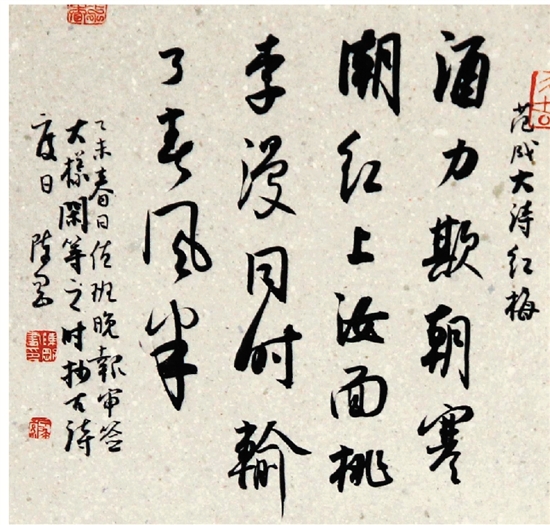 范成大诗红梅
酒力欺朝寒
潮红上妆面桃
李漫同时输
了春风半
乙未春日值班晚报审签
大样闲等之时抄古诗
度日